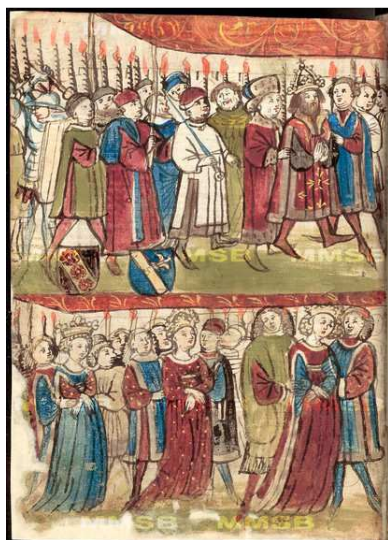 MMSB
MMSB
MMSB
MMSB
MMSB